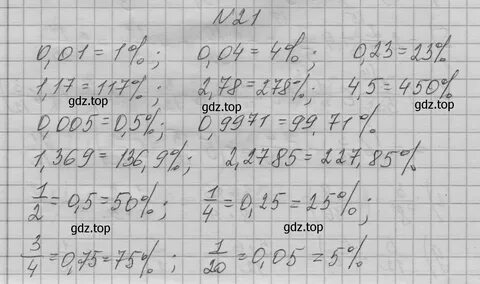 №21
0,01 = 1%; 0,04 = 4%; 0,23 = 23%
1,17 = 117%; 2,78 = 278%; 4,5 = 450%
gdz.top gdz.top
0,005 = 0,5%; 0,9971 = 99,71%
1,369 = 136,9%; 2,2785 = 227,85%
gdz.top gdz.top
1/2 = 0,5 = 50%; 1/4 = 0,25 = 25%;
3/4 = 0,75 = 75%; 1/20 = 0,05 = 5%
gdz.top gdz.top